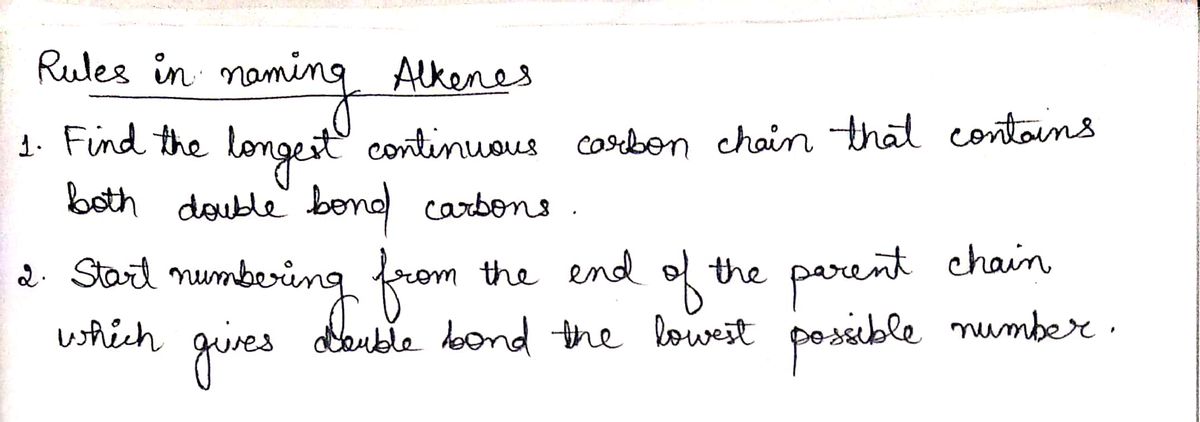 Rules in naming Alkenes
1. Find the longest continuous carbon chain that contains
both double bond carbons.
2. Start numbering from the end of the parent chain
which gives double bond the lowest possible number.